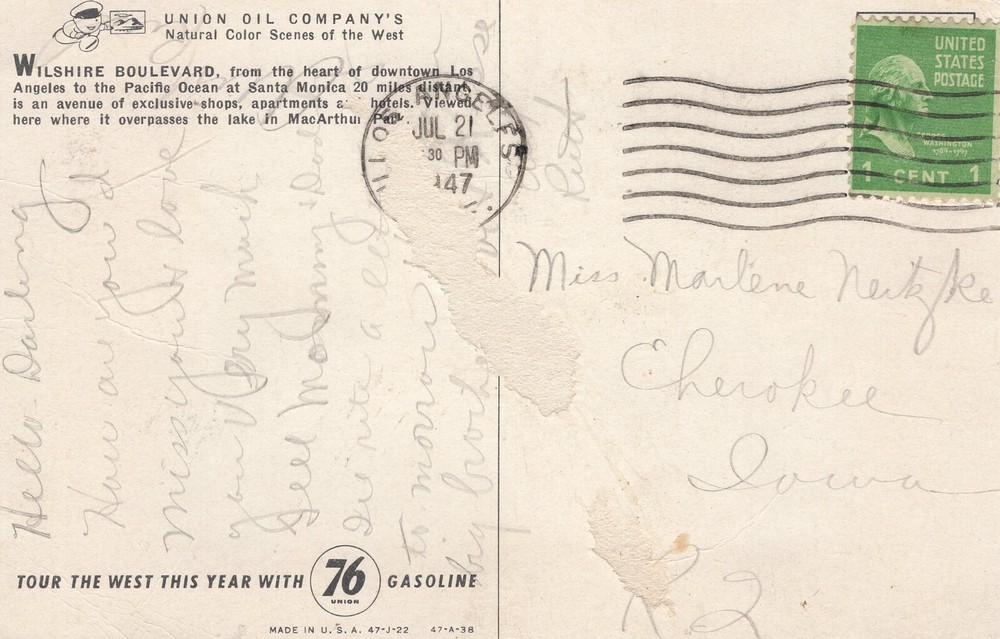 UNION OIL COMPANY'S
Natural Color Scenes of the West
WILSHIRE BOULEVARD, from the heart of downtown Los
Angeles to the Pacific Ocean at Santa Monica 20 miles distant,
is an avenue of exclusive shops, apartments a hotels. Viewed
here where it overpasses the lake in MacArthur Park.
Hello Darling
How are you I
miss you & love
you Very much
Tell Mommy & Dad
Ile rite a let
to morrow
big brother
Ruth
LOS ANGELES
JUL 21
30 PM
1947
UNITED
STATES
POSTAGE
GEORGE
WASHINGTON
1789-1797
1 CENT 1
Miss Marlene Neitzke
Cherokee
Iowa
R 2
TOUR THE WEST THIS YEAR WITH 76 GASOLINE
UNION
MADE IN U. S. A. 47-J-22 47-A-38